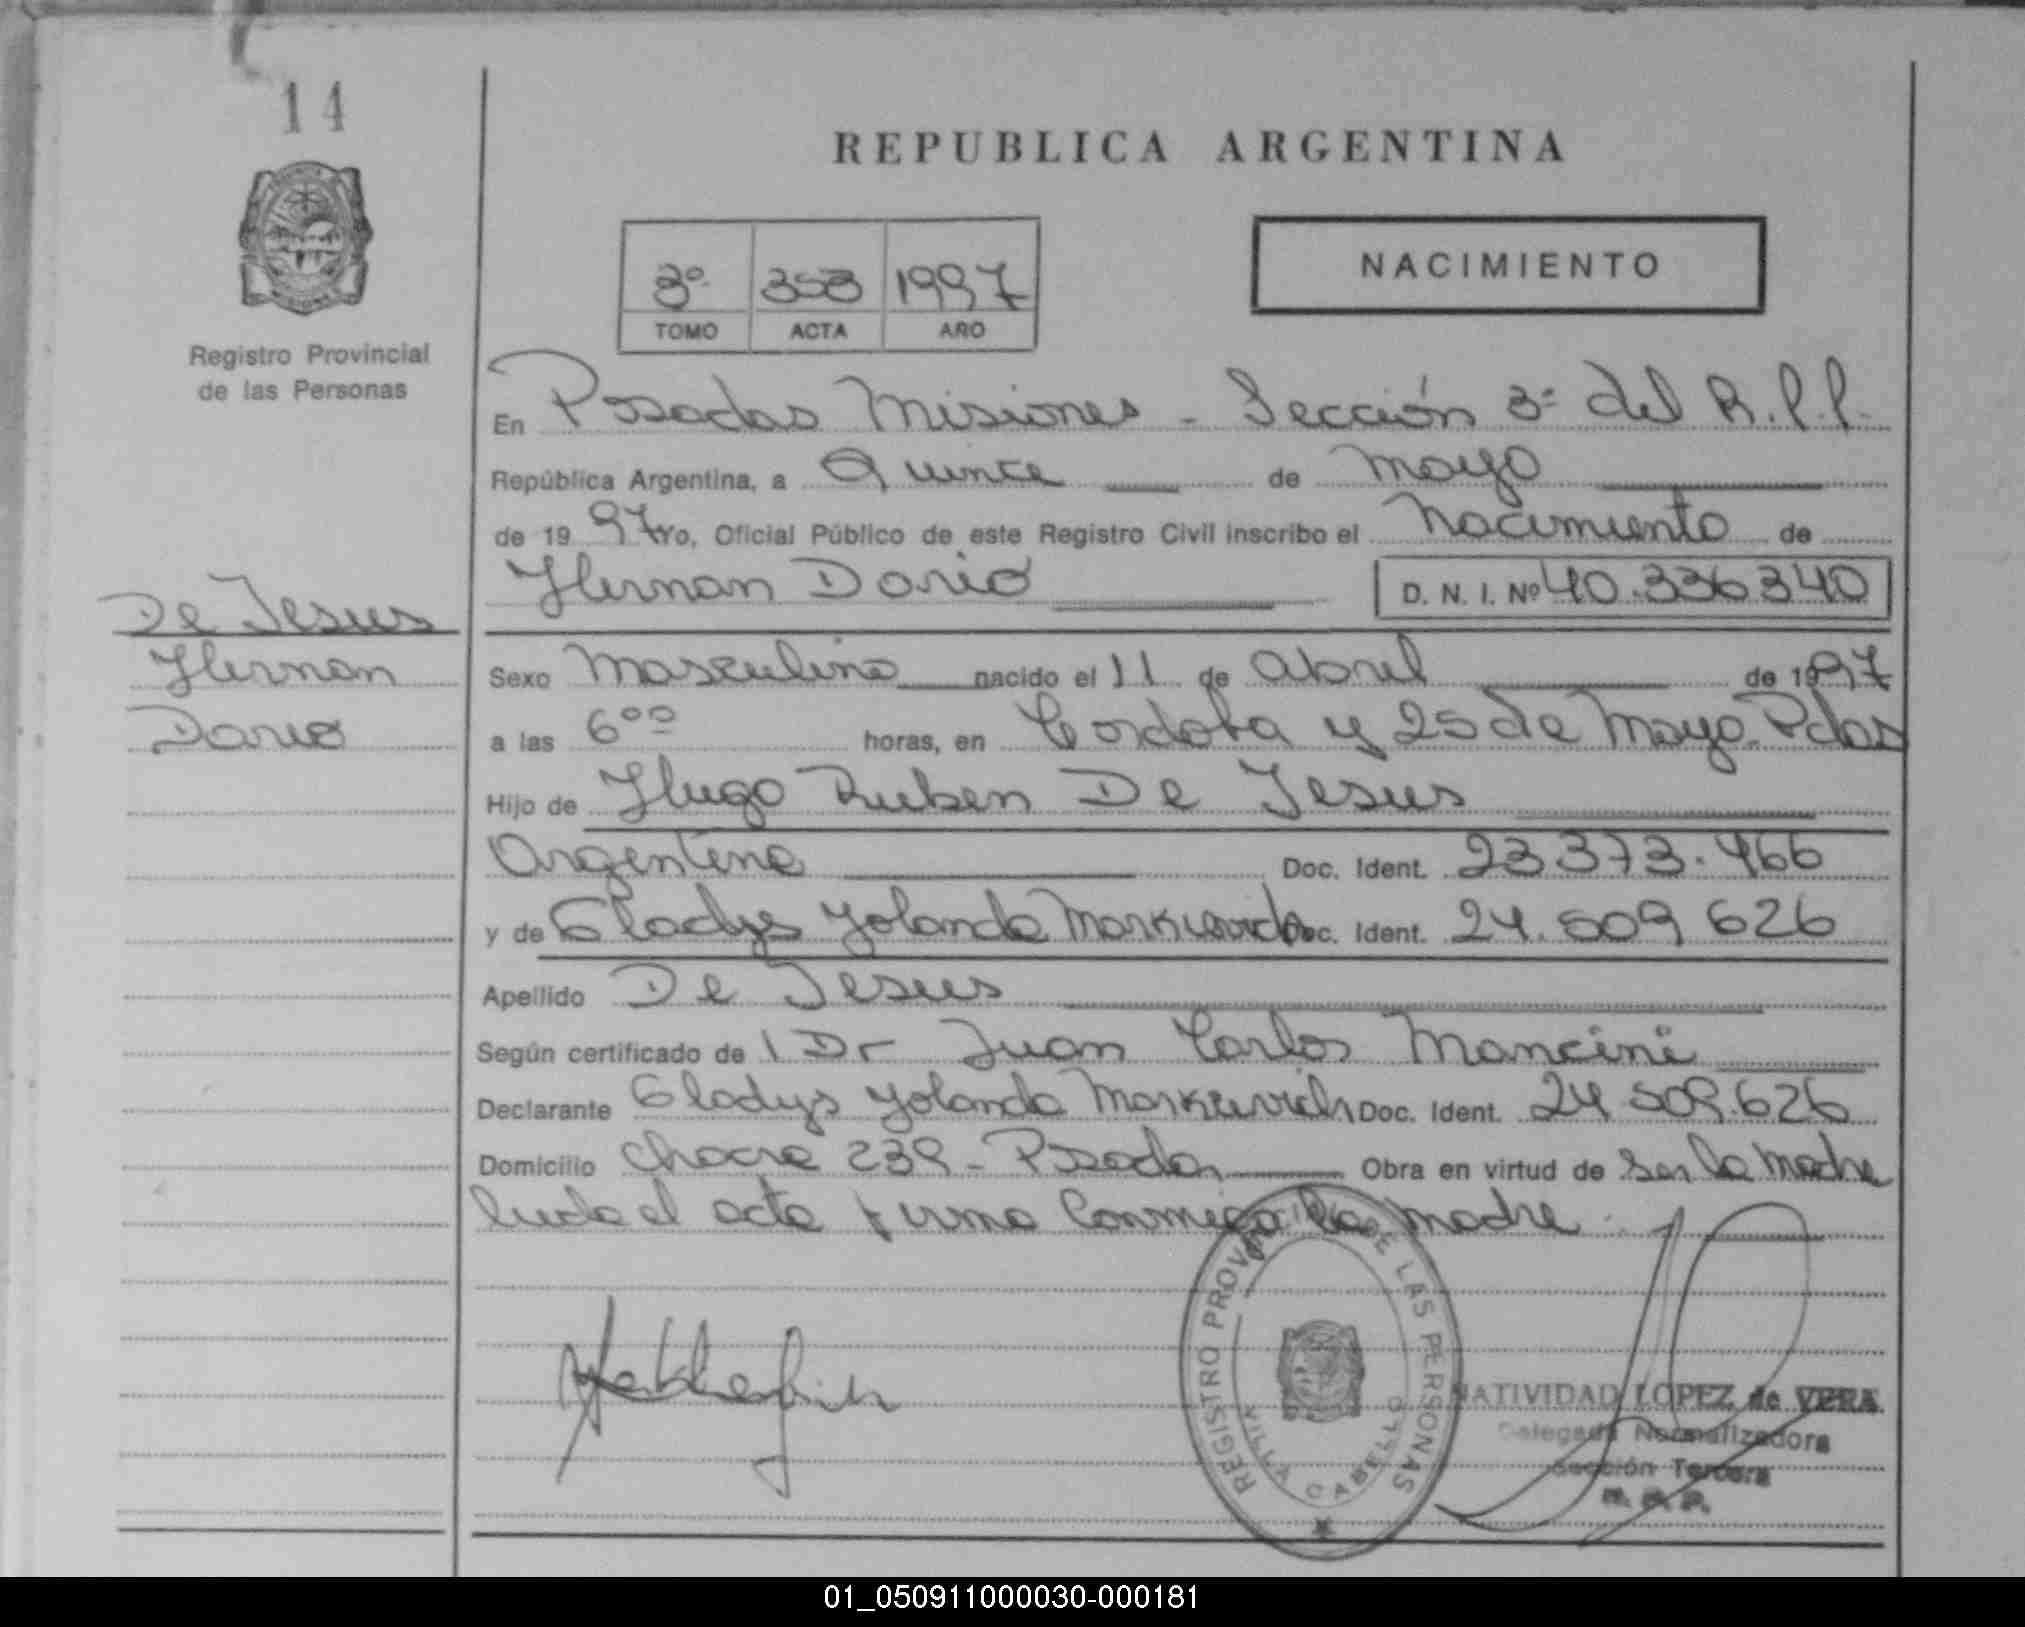 14
REPUBLICA ARGENTINA
NACIMIENTO
3º 353 1997
TOMO ACTA AÑO
Registro Provincial
de las Personas
En Posadas Misiones - Sección 3ª del R.P.P.
República Argentina, a Quince de mayo
de 19 97 yo, Oficial Público de este Registro Civil inscribo el Nacimiento de
Hernan Dario D. N. I. Nº 40.336340
De Jesus
Hernan
Dario
Sexo Masculino nacido el 11 de Abril de 1997
a las 6ºº horas, en Cordoba y 25 de Mayo. Pdas
Hijo de Hugo Ruben De Jesus
Argentino Doc. Ident. 23.373.466
y de Gladys Yolanda Markievich Doc. Ident. 24.509 626
Apellido De Jesus
Según certificado de 1 Dr Juan Carlos Mancini
Declarante Gladys Yolanda Markievich Doc. Ident. 24 509.626
Domicilio Chacra 239 - Posadas Obra en virtud de Ser la Madre
Leida el acta firma Conmigo la madre
REGISTRO PROVINCIAL DE LAS PERSONAS
VILLA CABELLO
NATIVIDAD LOPEZ de VERA
Delegada Normalizadora
Sección Tercera
01_050911000030-000181